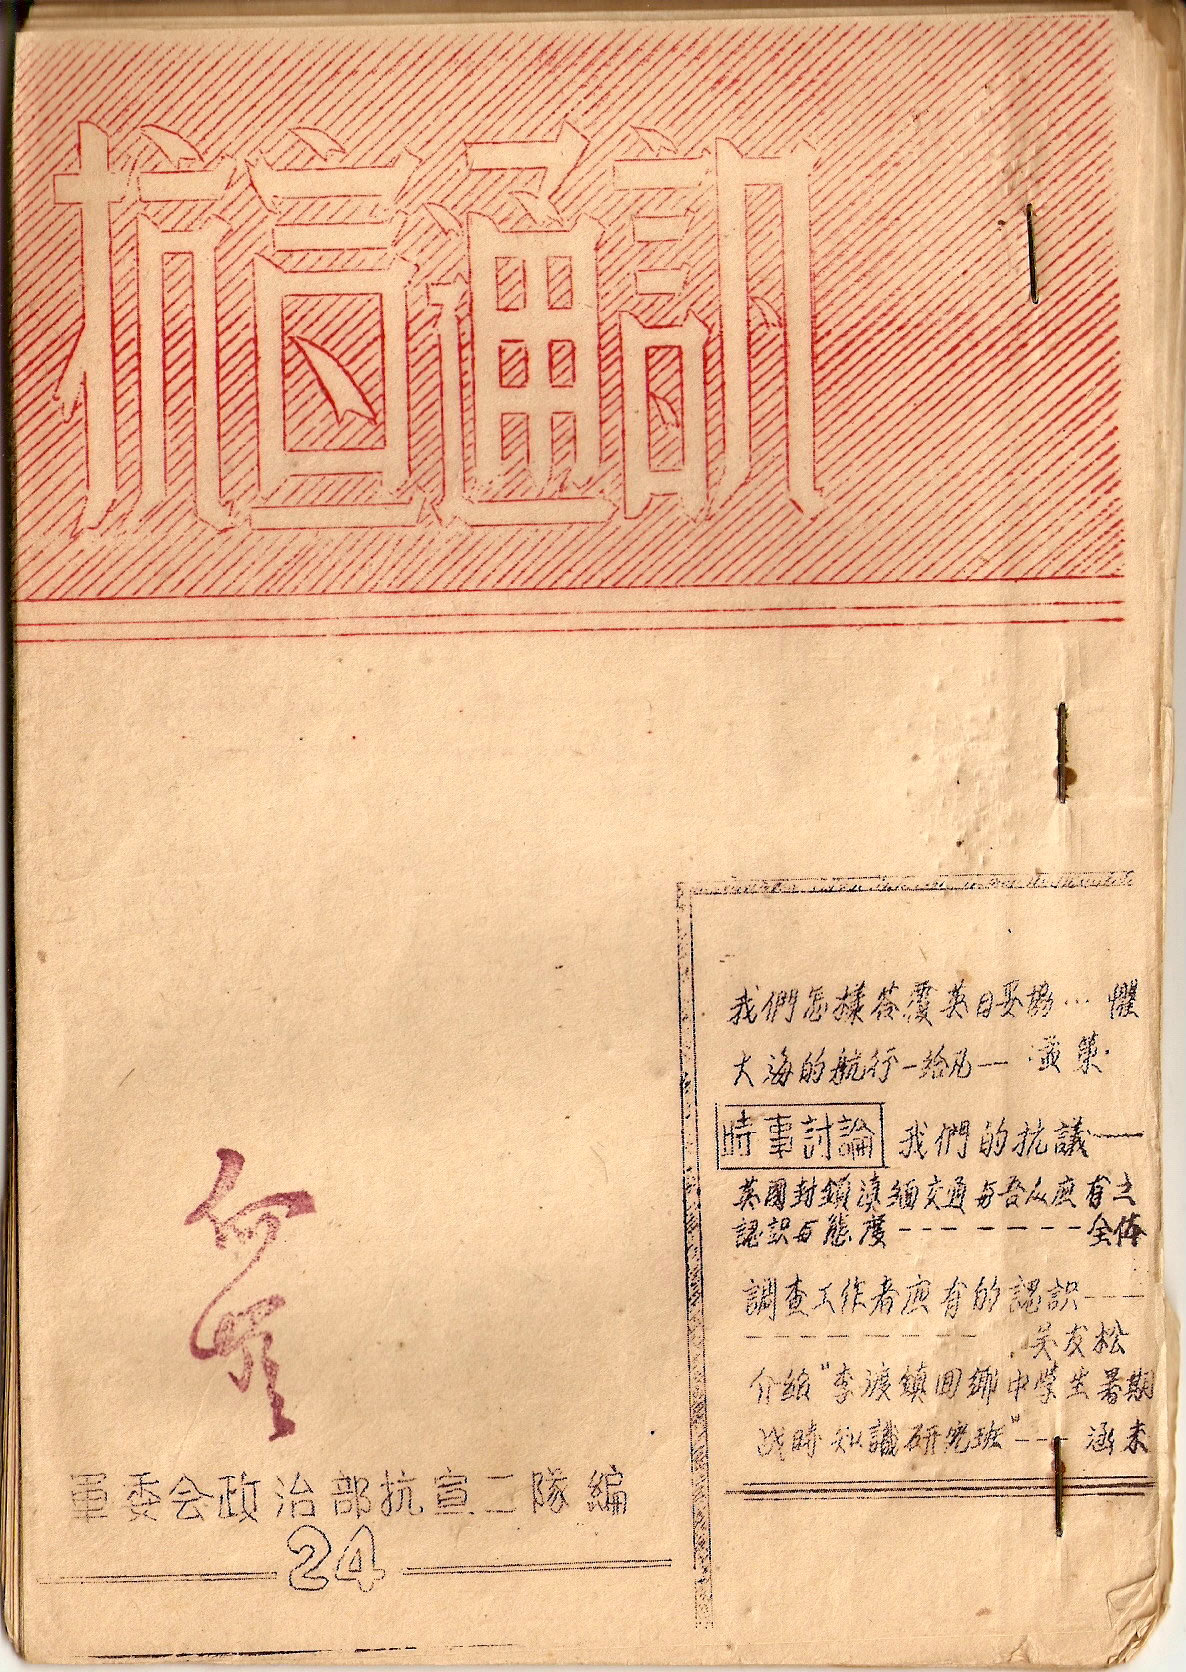 抗宣通訊
我們怎樣答覆英日妥協… 懼
大海的航行—給凡—
時事討論 我們的抗議——
英國封鎖滇緬交通与吾人应有之
認識与態度--------全体
調查工作者应有的認識---
-------- 吴友松
介紹"李渡鎮回鄉中學生暑期
战時知識研究班"--- 涵未
軍委会政治部抗宣二隊編
24